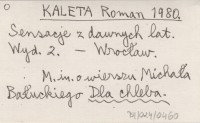 KALETA Roman 1980
Sensacje z dawnych lat.
Wyd. 2. - Wrocław.
M.in. o wierszu Michała
Bałuckiego Dla chleba.